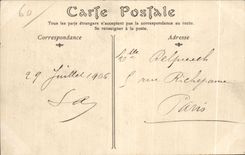 60
Carte Postale
Tous les pays étrangers n'acceptent pas la correspondance au recto.
Se renseigner à la poste.
Correspondance
Adresse
Mlle Delpuech
5 rue Richepanse
Paris
29 Juillet 1906